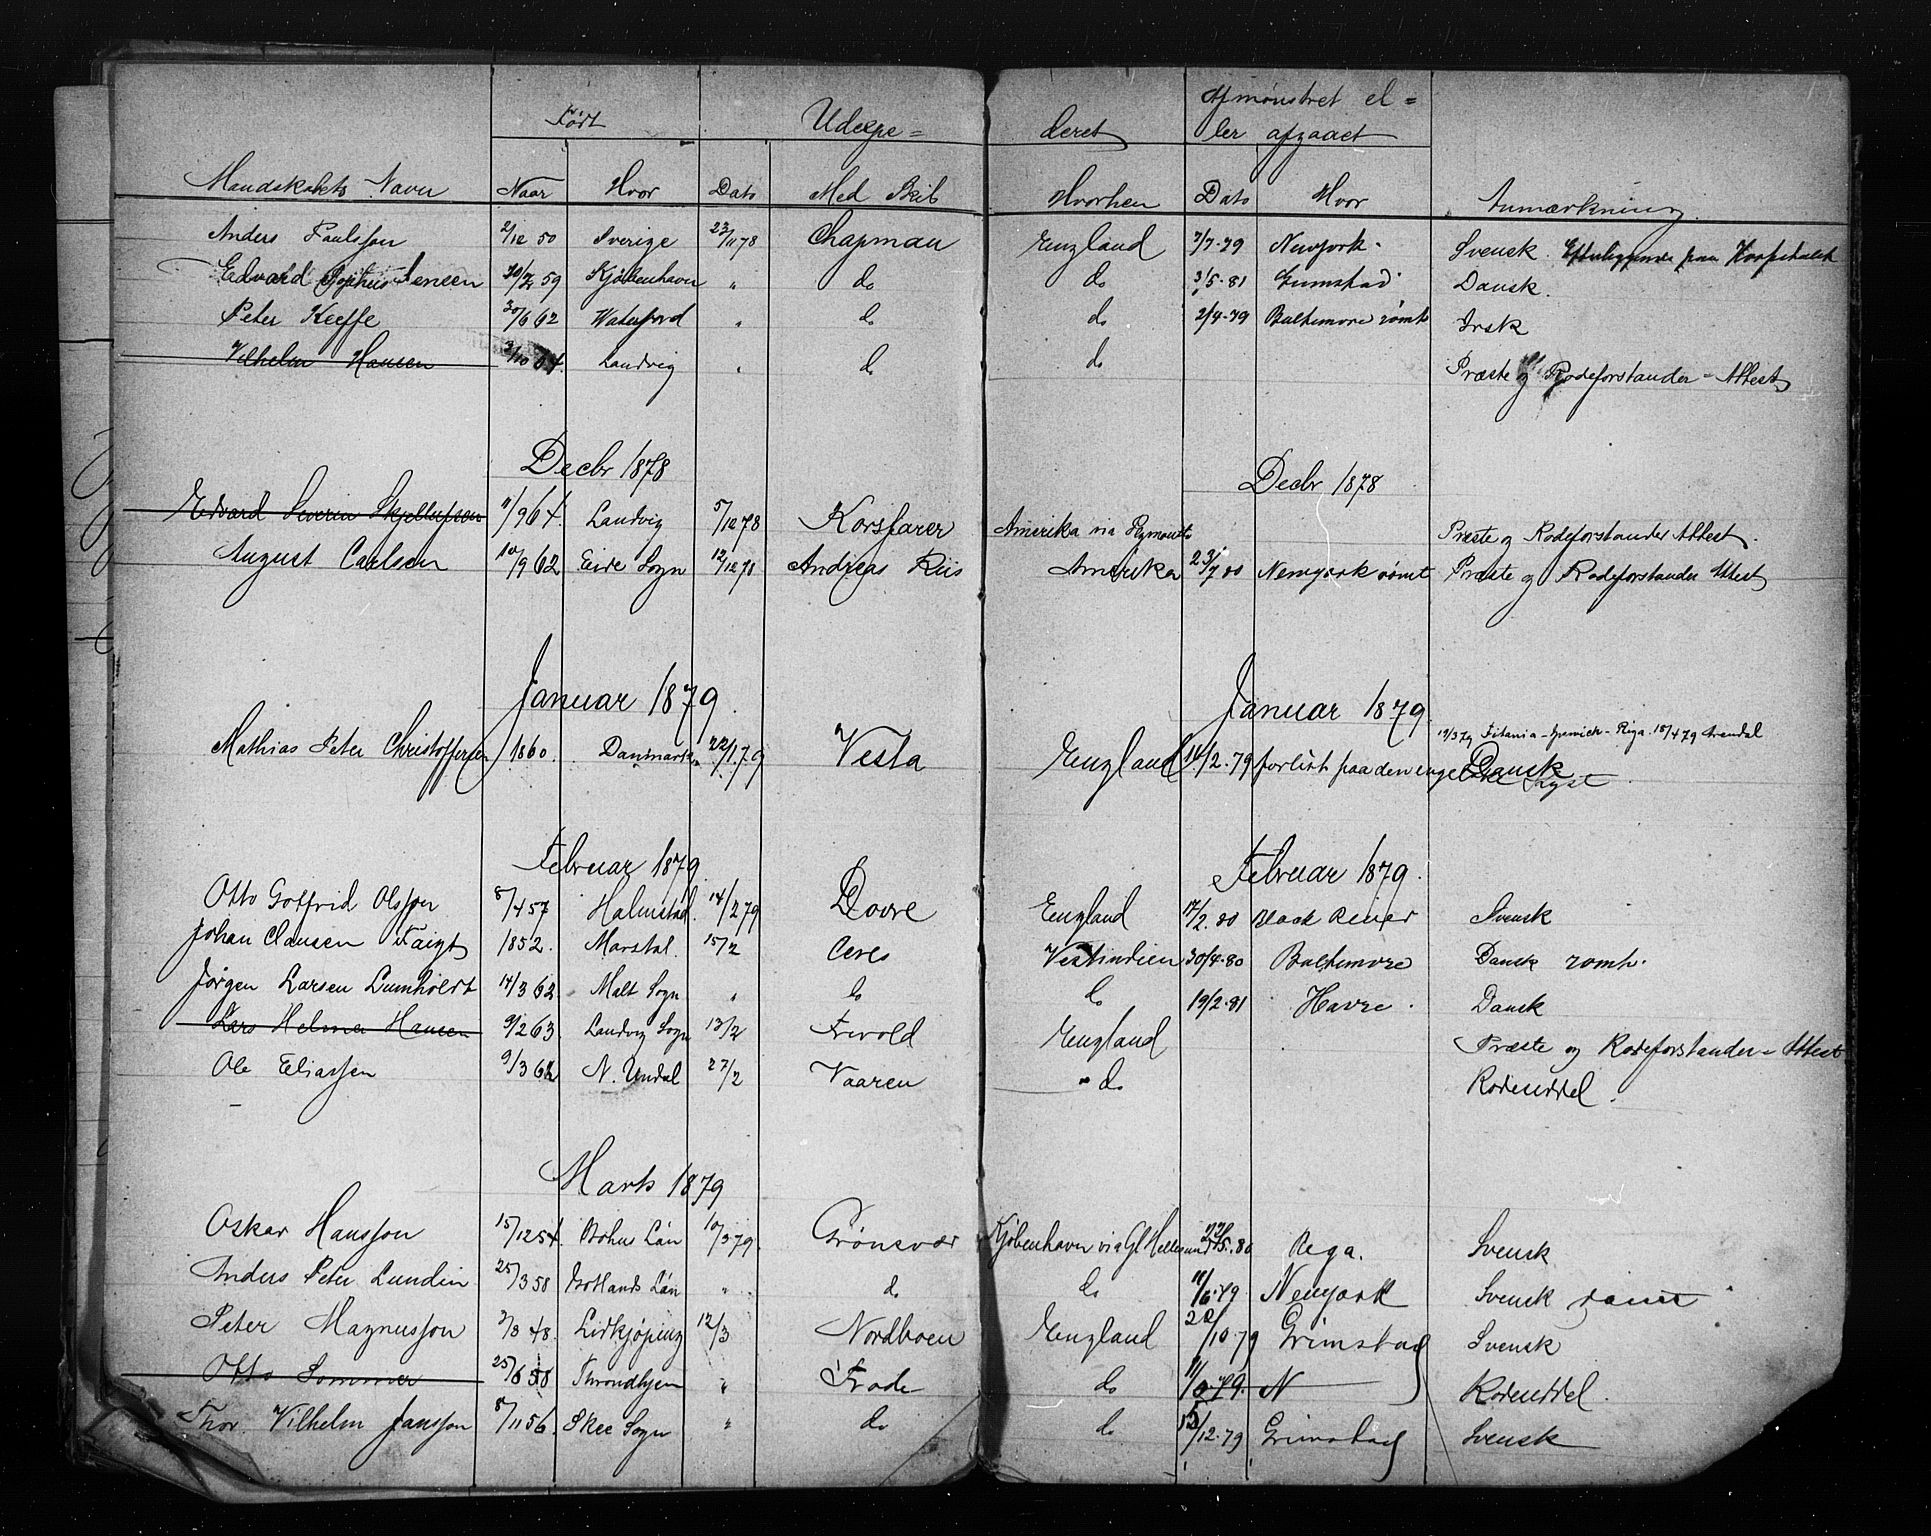 Født Udexpe= deret Afmønstret el=
ler afgaaet
Mandskabets Navn Naar Hvor Dato Med Skib Hvorhen Dato Hvor Anmærkning.
Anders Paulsson 2/12 50 Sverige 23/11 78 Chapman England 7/7-79 Newyork. Svensk. Efterliggende paa Hospitalet
Edvard Sophus Jensen 59 Kjøbenhavn " do do 3/5-81 Grimstad Dansk.
Peter Keeffe 30/6 62 Waterford " do do 2/4-79 Baltimore römt Irsk
Vilhelm Hansen 3/10 64. Landvig " do do Præste og Rodeforstander-Attest
Decbr 1878 Decbr 1878
Edvard Severin Skjellefsen 11/9 64. Landvig 5/12 78 Korsfarer Amerika via Plymouth Præste og Rodeforstander Attest.
August Carlsen 10/9 62 Eide Sogn 12/12 78 Andreas Riis Amerika 23/7 80 Newyork römt Præste og Rodeforstander Attest
Januar 1879. Januar 1879.
19/3 79 Titania - Ipswich - Riga. 18/4 79 Arendal
Mathias Peter Christoffersen 1860. Danmark 22/1.79 Vesta England 14/2.79 forlist paa den engelske Kyst Dansk
Februar 1879. Februar 1879.
Otto Gotfrid Olsson 8/4 57 Halmstad. 14/2 79 Dovre England 17/2.80 Black River Svensk
Johan Clausen Faigt 1852. Marstal. 15/2 Ceres Vestindien 30/4-80 Baltimore Dansk römt.
Jørgen Larsen Lumholdt 14/3 62 Malt Sogn " do do 19/2.81 Havre. Dansk
Lars Helmer Hansen 9/2 63. Landvig Sogn 13/2 Frivold England Præste og Rodeforstander-Attest
Ole Eliassen 9/3 62 N. Undal 27/2 Vaaren do Rodeuddel.
Marts 1879
Oskar Hansson 15/12 54. Bohus Län 10/3 79. Grönsvær Kjøbenhavn via Gl Hellesund 80 Riga. Svensk
Anders Peter Lundin 25/3 58 Gotlands Län " do do 11/6.79 Newyork Svensk römt
Peter Magnusson 3/3 48. Lidkjöping 12/3 Nordboen England 22/10.79 Grimstad Svensk
Otto Sommer 25/6 58 Throndhjem " Frode do 11/6.79. N Rodeuddel.
Thor. Vilhelm Jansson 8/11 56. Skee Sogn " do do 15/12.79 Grimstad Svensk